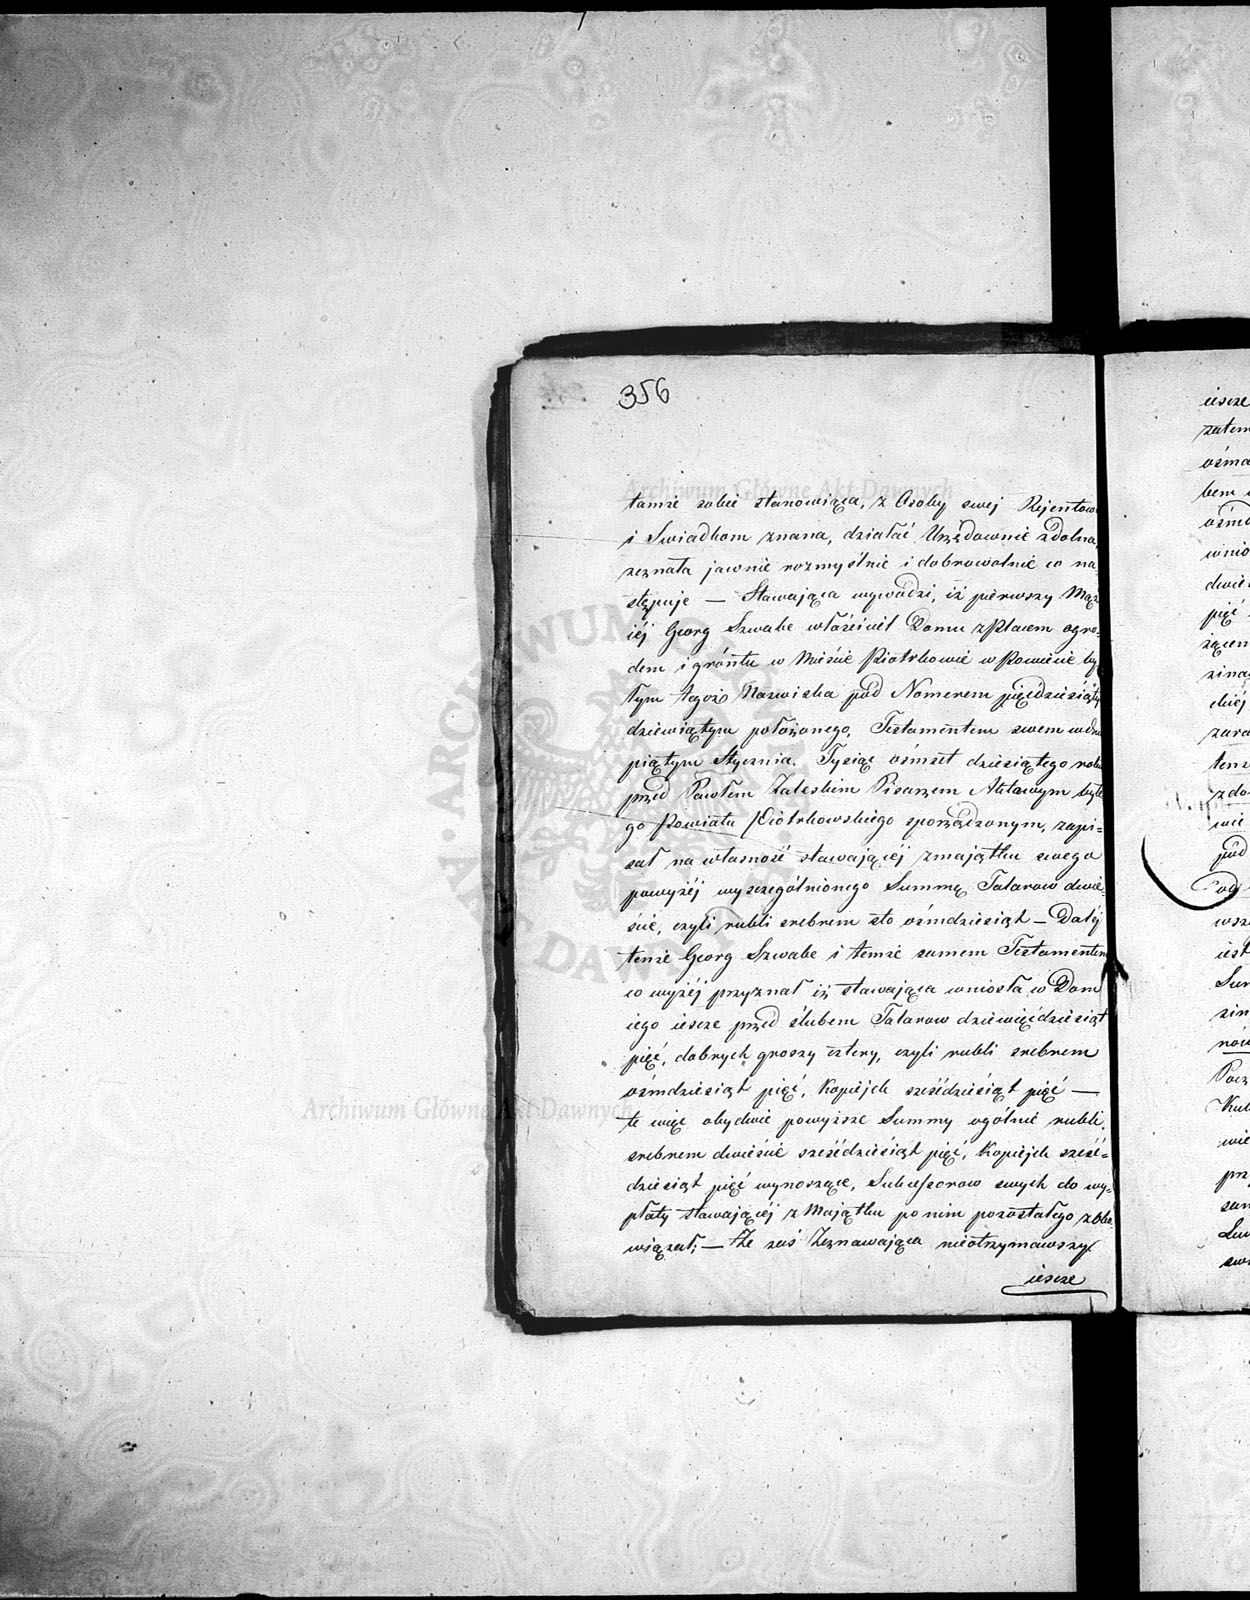 356
tamże sobie stanowiąca, z Osoby swej Rejentow
i Swiadkom znana, działać Urzędownie zdolna,
zeznała jawnie rozmyślnie i dobrowolnie co na-
stępuje — Stawająca wywodzi, iż pierwszy Mąż
iéj Georg Szwabe właściciel Domu z Placem ogro-
dem i gróntu w Mieście Piotrkowie w Powiecie by
łym tegoż Nazwiska pod Nomerem pięćdziesiąty
dziewiątym położonego, Testamentem swem w dniu
piątym Stycznia. Tysiąc óśmset dziesiątego roku
przed Pawłem Zaleskim Pisarzem Aktowym byłe
go Powiatu Piotrkowskiego sporządzonym, zapi-
sał na własność stawającéj z majątku swego
powyżéj wyszczególnionego Summę Talarow dwie-
ście, czyli rubli srebrem sto ośmdziesiąt — Daléj
tenże Georg Szwabe i temże samem Testamentem
co wyżéj przyznał iż stawająca wniosła w Dom
iego iescze przed ślubem Talarow dziewięćdziesiąt
pięć, dobrych groszy cztery, czyli rubli srebrem
ośmdziesiąt pięć, Kopiejek sześćdziesiąt pięć —
te więc obydwie powyższe Summy ogólnie rubli
srebrem dwieście sześćdziesiąt pięć, Kopiejek sześć-
dziesiąt pięć wynoszące, Sukcessorow swych do wy-
płaty stawającéj z Majątku po nim pozostałego zobo
wiązał; — Że zaś Zeznawająca nieotrzymawszy
iescze
iescze
zatem
ośmd
bem
ośmd
wnio
dwie
pięć
temż
zdo
wie
pod
wsze
iest
Sum